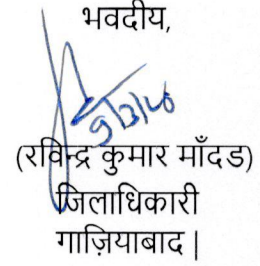 भवदीय,
(रविन्द्र कुमार माँदड)
जिलाधिकारी
गाज़ियाबाद |